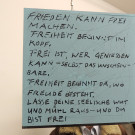 FRIEDEN KANN FREI
MACHEN.
FREIHEIT BEGINNT IM
KOPF.
FREI IST, WER GENIESSEN
KANN – SELBST DAS UNSCHEIN-
BARE.
FREIHEIT BEGINNT DA, WO
FREUDE BESTEHT.
LASSE DEINE SEELISCHE WUT
UND MÜHE RAUS – UND DU
BIST FREI